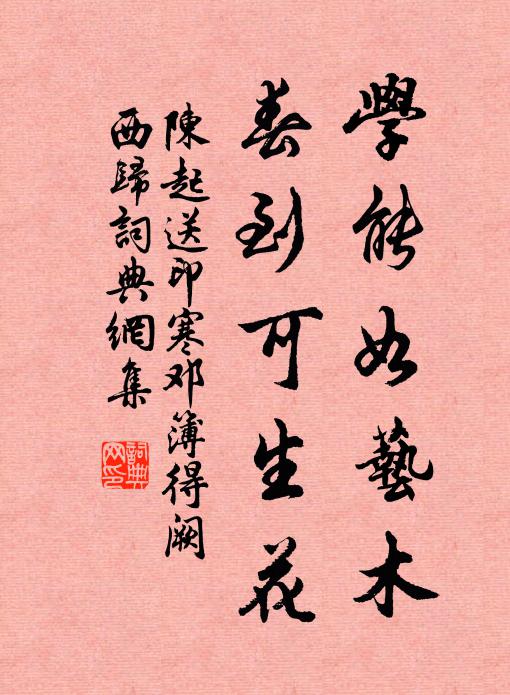 學能如藝木
春到可生花
陳起送印寒邓簿得阙
西歸詞典網集
詞典
网印